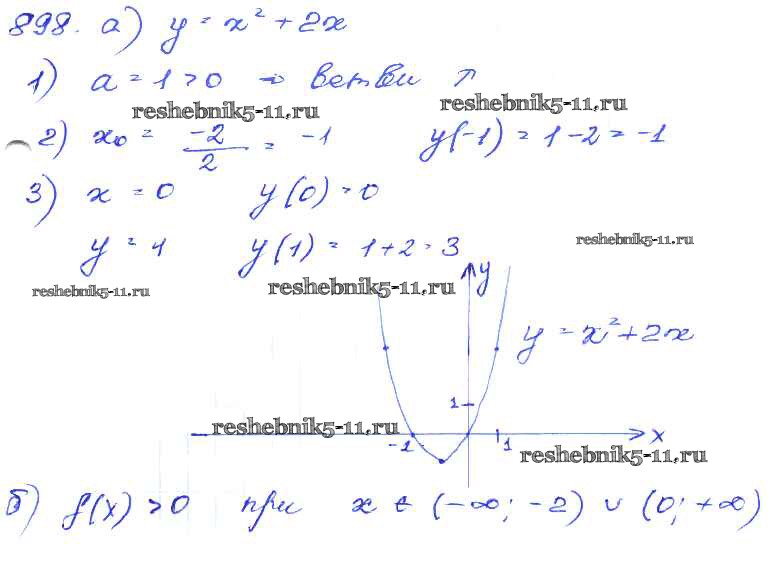 898. а) y = x² + 2x
1) a = 1 > 0 ⇒ ветви ↑
reshebnik5-11.ru reshebnik5-11.ru
2) x₀ = -2/2 = -1 y(-1) = 1 - 2 = -1
3) x = 0 y(0) = 0
y = 1 y(1) = 1 + 2 = 3
reshebnik5-11.ru
reshebnik5-11.ru reshebnik5-11.ru
y
y = x² + 2x
1
reshebnik5-11.ru
-1 1 x
reshebnik5-11.ru
б) f(x) > 0 при x ∈ (-∞; -2) ∪ (0; +∞)